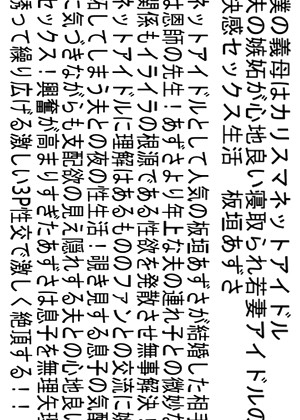 僕の義母はカリスマネットアイドル
夫の嫉妬が心地良い寝取られ若妻アイドルの
快感セックス生活　板垣あずさ
ネットアイドルとして人気の板垣あずさが結婚した相手
は恩師の先生！あずさより年上な夫の連れ子との微妙な
関係もイライラの根源である性欲を発散させ無事解決！
ネットアイドルに理解はあるもののファンとの交流に嫉
妬してしまう夫との夜の性生活！覗き見する息子の気配
に気づきながらも支配欲の見え隠れする夫との心地良い
セックス！興奮が高まりすぎたあずさは息子を無理矢理
誘って繰り広げる激しい3P性交で激しく絶頂する！！